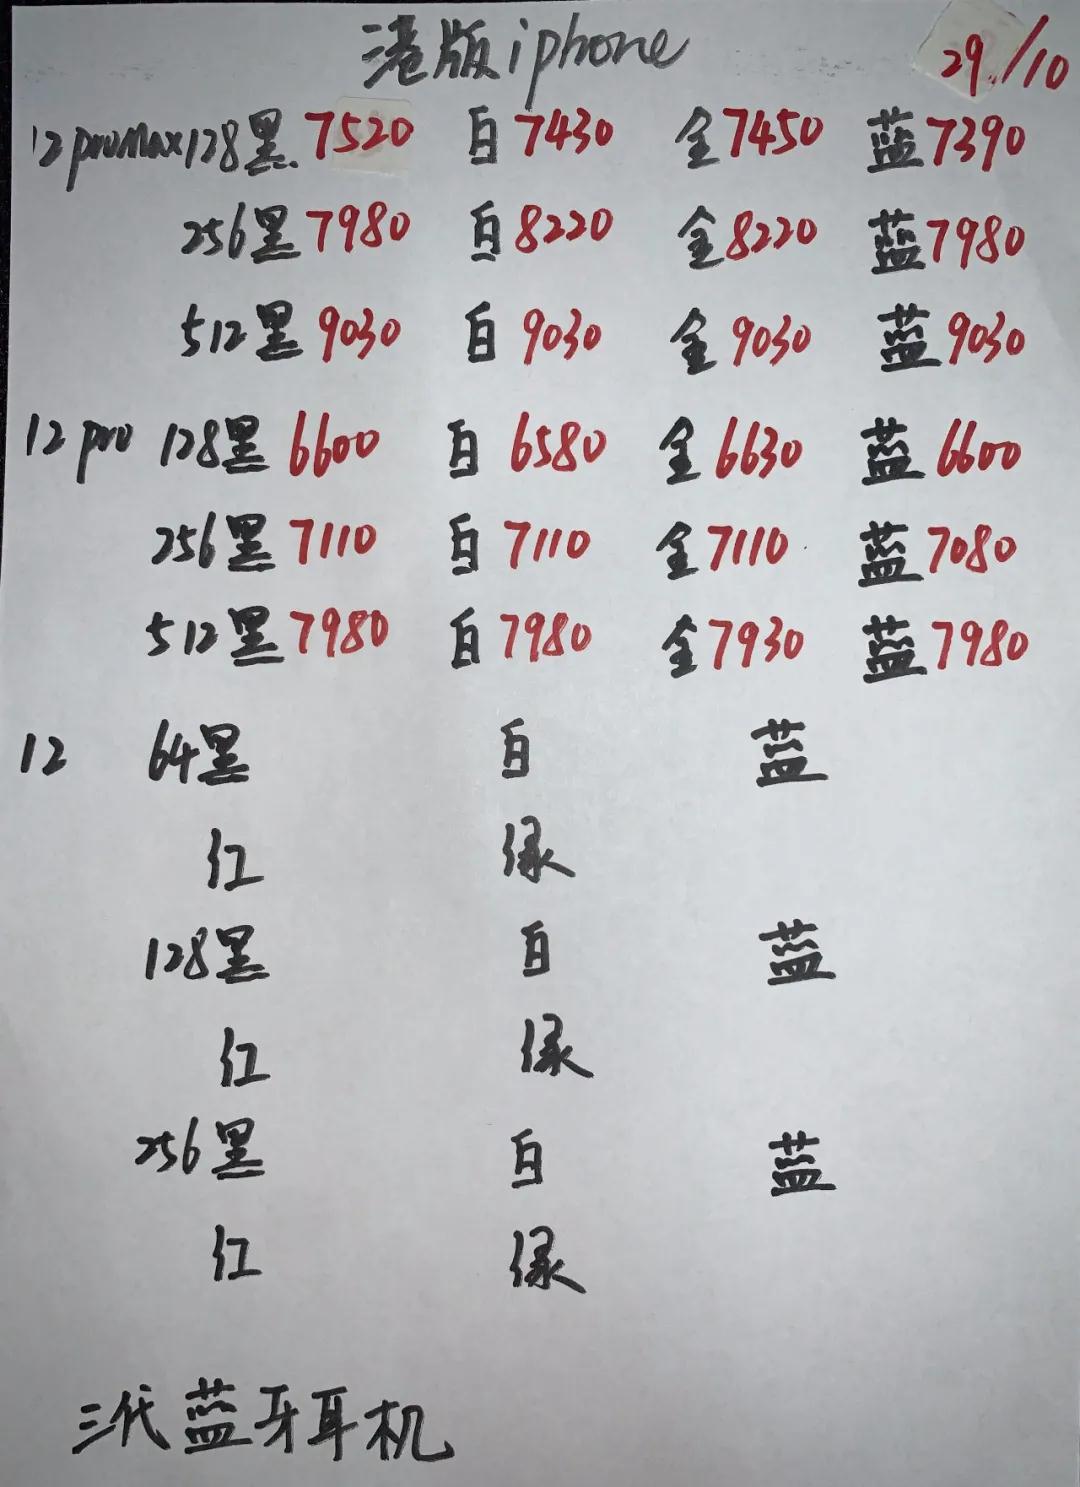 港版iphone 29/10
12promax128黑7520 白7430 金7450 蓝7390
256黑7980 白8220 金8220 蓝7980
512黑9030 白9030 金9030 蓝9030
12pro 128黑6600 白6580 金6630 蓝6600
256黑7110 白7110 金7110 蓝7080
512黑7980 白7980 金7930 蓝7980
12 64黑 白 蓝
红 绿
128黑 白 蓝
红 绿
256黑 白 蓝
红 绿
三代蓝牙耳机